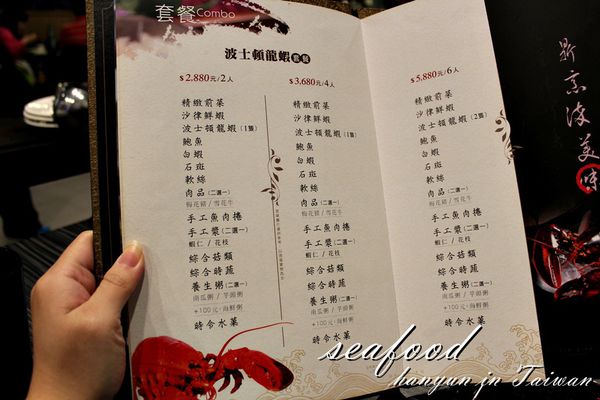 套餐Combo
波士頓龍蝦套餐
$2.880元/2人
精緻前菜
沙律鮮蝦
波士頓龍蝦(1隻)
鮑魚
白蝦
石斑
軟絲
肉品(二選一)
梅花豬/雪花牛
手工魚肉捲
手工漿(二選一)
蝦仁/花枝
綜合菇類
綜合時蔬
養生粥(二選一)
南瓜粥/芋頭粥
+100元:海鮮粥
時令水菓
$3.680元/4人
精緻前菜
沙律鮮蝦
波士頓龍蝦(1隻)
鮑魚
白蝦
石斑
軟絲
肉品(二選一)
梅花豬/雪花牛
手工魚肉捲
手工漿(二選一)
蝦仁/花枝
綜合菇類
綜合時蔬
養生粥(二選一)
南瓜粥/芋頭粥
+100元:海鮮粥
時令水菓
$5.880元/6人
精緻前菜
沙律鮮蝦
波士頓龍蝦(2隻)
鮑魚
白蝦
石斑
軟絲
肉品(二選一)
梅花豬/雪花牛
手工魚肉捲
手工漿(二選一)
蝦仁/花枝
綜合菇類
綜合時蔬
養生粥(二選一)
南瓜粥/芋頭粥
+100元:海鮮粥
時令水菓
鼎京海美味
seafood
hanyun jn Taiwan